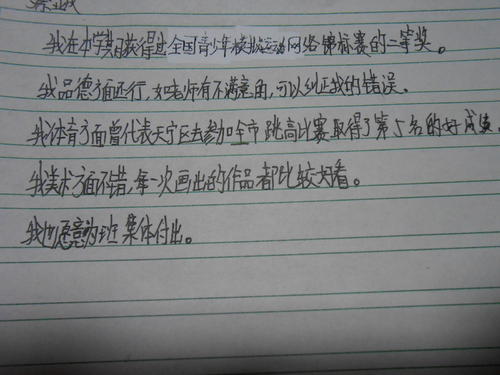 我在本学期获得过全国青少年模拟运动网络锦标赛的二等奖。
我品德方面还行,如老师有不满意角,可以纠正我的错误。
我体育方面曾代表天宁区去参加全市跳高比赛取得了第5名的好成绩
我美术方面不错,每一次画出的作品都比较好看。
我也愿意为班集体付出。